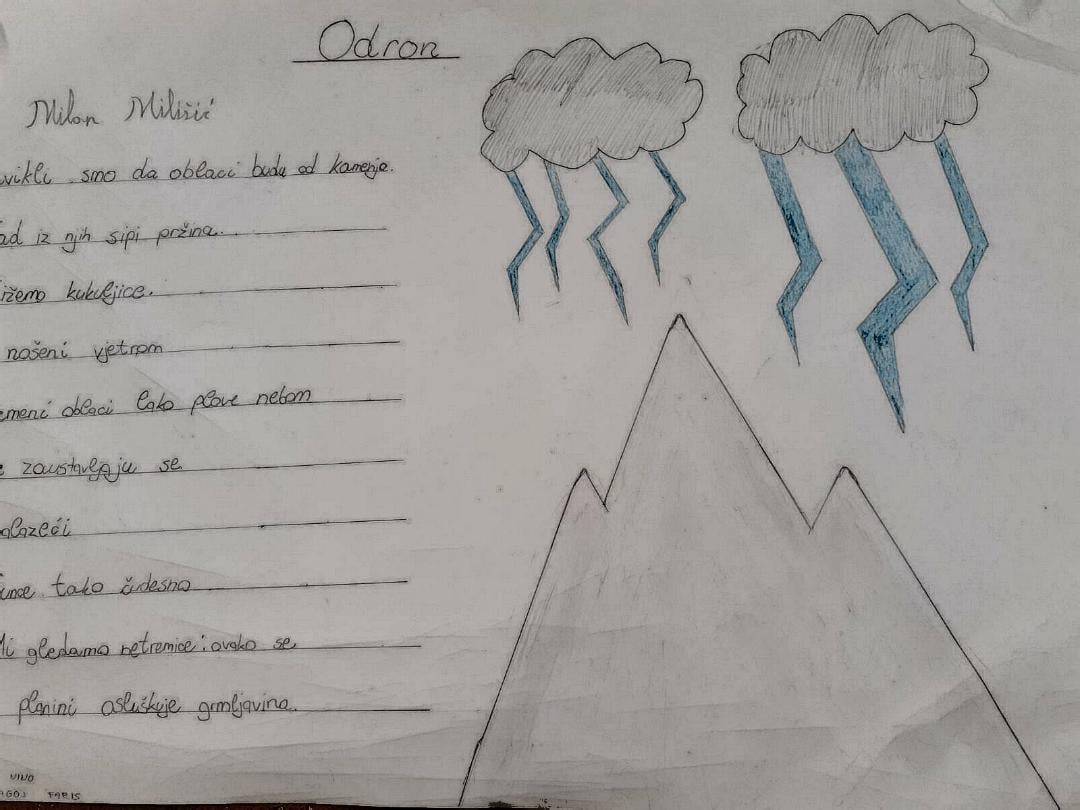 Odron
Milan Milišić
vikli smo da oblaci budu od kamenja.
ad iz njih sipi pržina.
ižemo kukuljice.
nošeni vjetrom
meni oblaci lako plove nebom
e zaustavljaju se
alazeći
unce tako čudesno
Mi gledamo netremice: ovako se
planini osluškuje grmljavina.
VIVO
AGOJ FARIS